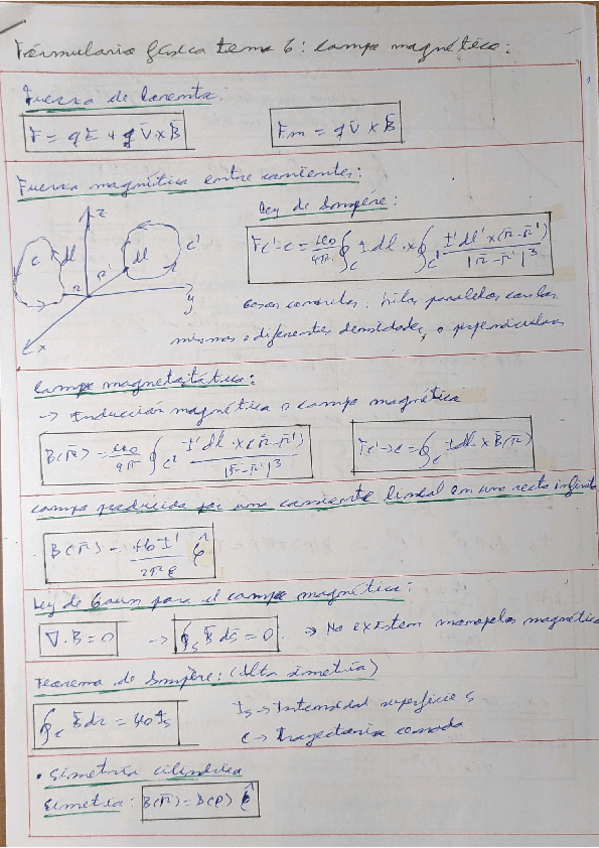 Formulario física tema 6: campo magnético:
Fuerza de Lorentz:
F̄ = qĒ + q V̄ × B̄
F̄m = q V̄ × B̄
Fuerza magnética entre corrientes:
Ley de Ampére:
z
c
dl
dl
c'
r̄
r̄'
y
x
F̄c'-c = μ0/4π ∮c I dl × ∮c' I' dl' × (r̄-r̄')/|r̄-r̄'|³
Casos concretos: hilos paralelos con las
mismas o diferentes densidades, o perpendiculares
Campo magnetostático:
→ Inducción magnética o campo magnético
B(r̄) = μ0/4π ∮c' I' dl' × (r̄-r̄')/|r̄-r̄'|³
F̄c'→c = ∮c I dl × B(r̄)
Campo producido por una corriente lineal en una recta infinita
B(r̄) = μ0 I'/2πρ φ̂
Ley de Gauss para el campo magnético:
∇·B = 0 → ∮s B̄ ds̄ = 0. → No existen monopolos magnético
Teorema de Ampére: (Alta simetría)
∮c B̄ dr = μ0 Is
Is → Intensidad superficie s
c → Trayectoria cerrada
• Simetría cilíndrica
Simetría: B(r̄) = B(ρ) φ̂